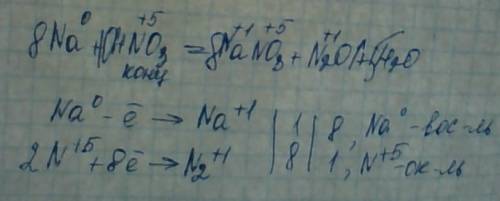 8Na⁰+10HN⁺⁵O₃=8Na⁺¹N⁺⁵O₃+N₂⁺¹O+5H₂O
конц
Na⁰-ē→Na⁺¹ | 1 | 8, Na⁰-вос-ль
2N⁺⁵+8ē→N₂⁺¹ | 8 | 1, N⁺⁵-ок-ль